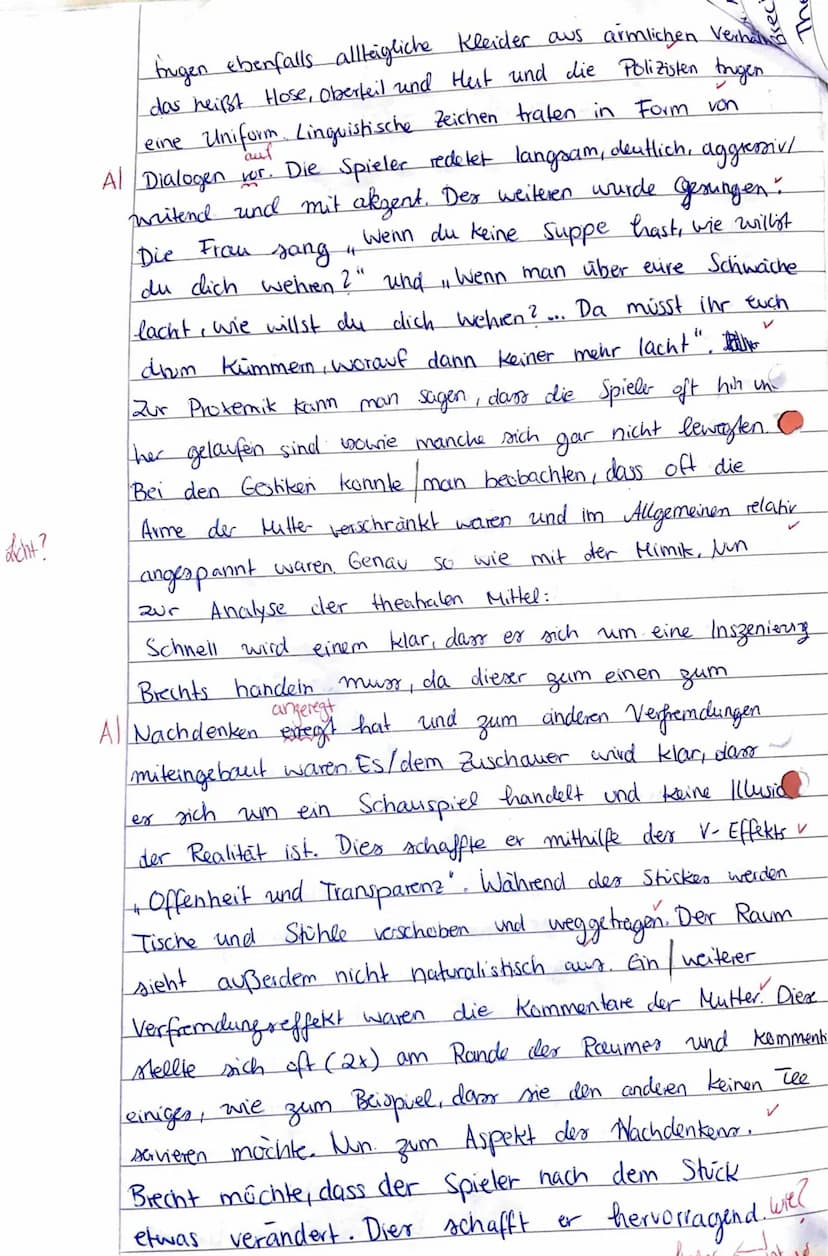 trugen ebenfalls alltägliche Kleider aus ärmlichen Verhältn
das heißt Hose, Oberteil und Hut und die Polizisten trugen
eine Uniform. Linguistische Zeichen traten in Form von
auf
A| Dialogen vor. Die Spieler redetet langsam, deutlich, aggressiv/
wütend und mit akzent. Des weiteren wurde Gesungen:
Die Frau sang „Wenn du keine Suppe hast, wie willst
du dich wehren?" und „Wenn man über eure Schwäche
lacht, wie willst du dich wehren?... Da müsst ihr Euch
drum kümmern, worauf dann keiner mehr lacht".
Zur Proxemik kann man sagen, dass die Spieler oft hin un
her gelaufen sind sowie manche sich gar nicht bewegten.
Bei den Gestiken konnte/man beobachten, dass oft die
Arme der Mutter verschränkt waren und im Allgemeinen relativ
angespannt waren. Genau so wie mit der Mimik. Nun
zur Analyse der theatralen Mittel:
Schnell wird einem klar, dass es sich um eine Inszenierung
Brechts handeln muss, da dieser zum einen zum
angeregt
A| Nachdenken erregt hat und zum anderen Verfremdungen
miteingebaut waren. Es/dem Zuschauer wird klar, dass
es sich um ein Schauspiel handelt und keine Illusio
der Realität ist. Dies schaffte er mithilfe des V-Effekts
„Offenheit und Transparenz". Während des Stückes werden
Tische und Stühle verschoben und weggetragen. Der Raum
sieht außerdem nicht naturalistisch aus. Ein/weiterer
Verfremdungseffekt waren die Kommentare der Mutter. Diese
stellte sich oft (2x) am Rande des Raumes und kommenti
einiges, wie zum Beispiel, dass sie den anderen keinen Tee
servieren möchte. Nun zum Aspekt des Nachdenkens.
Brecht möchte, dass der Spieler nach dem Stück
etwas verändert. Dies schafft er hervorragend. wie?